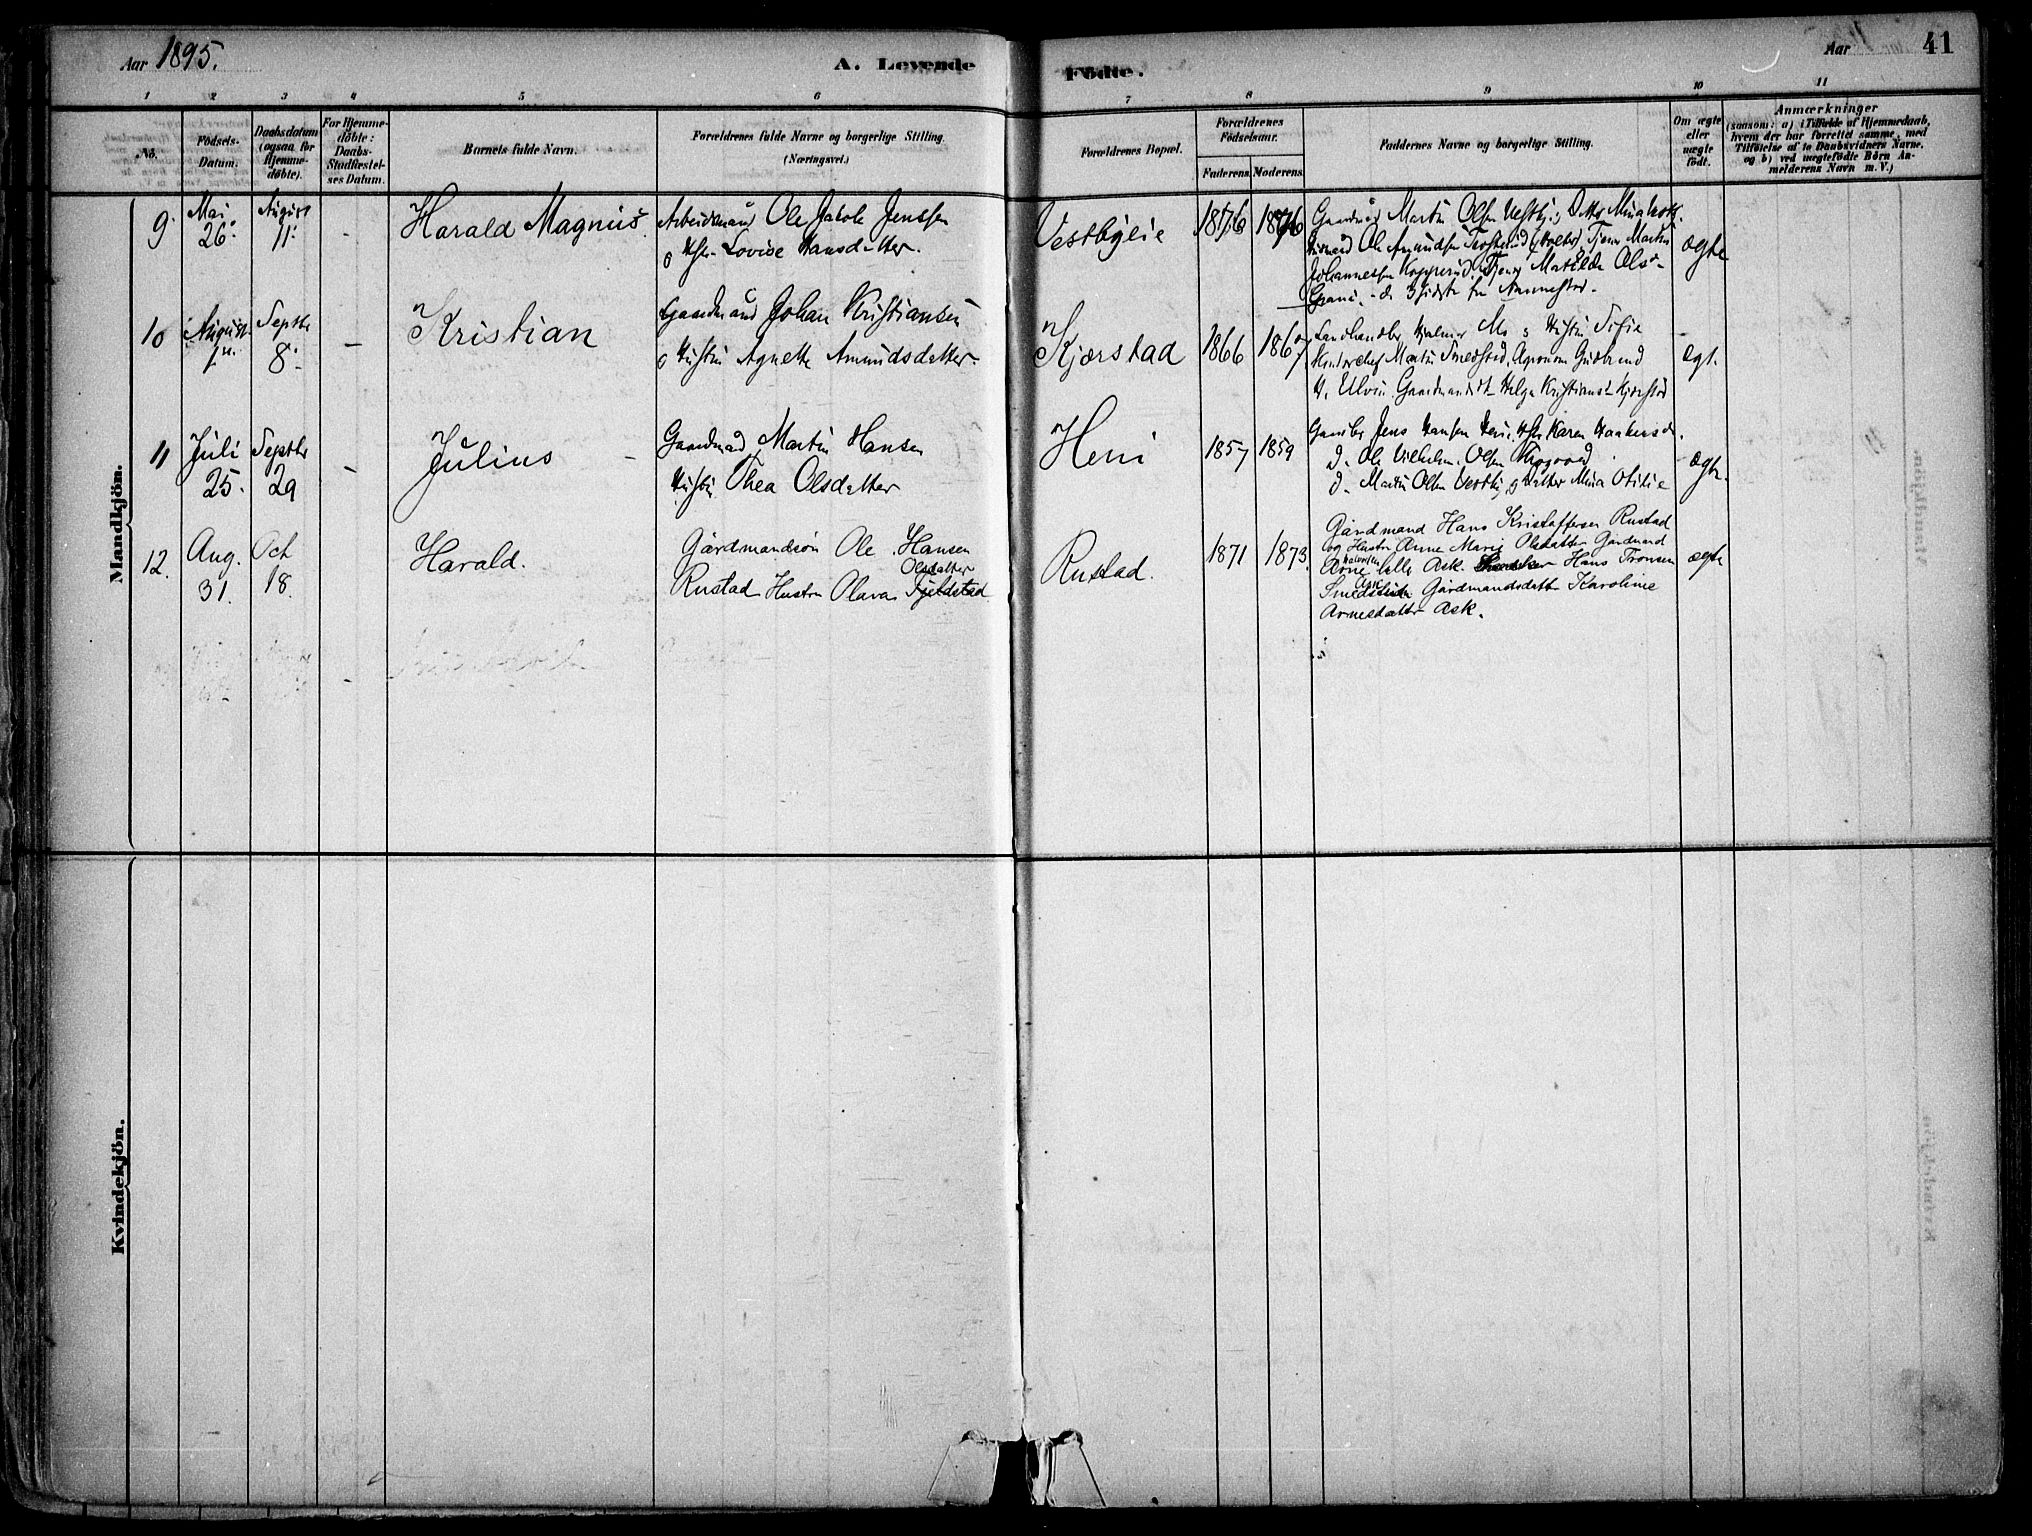 Aar 1895.
A. Levende
Födte.
Aar
41
1 2 3 4 5 6 7 8 9 10 11
No.
Födsels-
Datum.
Daabsdatum
(ogsaa for
Hjemme-
døbte).
For Hjemme-
døbte:
Daabs-
Stadfæstel-
ses Datum.
Barnets fulde Navn.
Forældrenes fulde Navne og borgerlige Stilling.
(Næringsvei.)
Forældrenes Bopæl.
Forældrenes
Födselsaar.
Faderens.
Moderens.
Faddernes Navne og borgerlige Stilling.
Om ægte
eller
uægte
födt.
Anmærkninger
(saasom: a) i Tilfælde af Hjemmedaab,
hvem der har forrettet samme, med
Tilföielse af to Daabsvidners Navne,
og b) ved uægtefödte Börn An-
melderens Navn m.V.)
Mandkjön.
9.
Mai
26.
August
11.
-
Harald Magnus.
Arbeidsmand Ole Jacob Jenssen
o Hstr. Lovise Hansdatter.
Vestbyeie
1876
1876
Gaardmd Martin Olsen Vestby,
Ole Amundsen Tjener Martin
Johannessen Kopperud, Tjen Matilde Ols-
Grani. - de 3 sidste fra
ægte
10
August
Septbr
8.
-
Kristian
Gaardmand Johan Kristiansen
o Hustru Agnette Amundsdatter.
Kjærstad
1866
1867
Landhandler Hjalmar Mo o Hustru Sofie
Martin Smedstad, Agronom Gudbrand
H. Ulvin Helga Kristians- Kjærstad
ægt.
11
Juli
25.
Septbr
29
-
Julius
Gaardmd Martin Hansen
Hustru Thea Olsdatter
Heni
1857
1859
Gaardbr Jens Hansen Heni, Hstr Karen Haakensd.
d. Ole Vilhelm Olsen
d. Martin Olsen Vestby, o Datter Mina Otilie
ægte.
12.
Aug.
31.
Oct
18.
Harald.
Gårdmandsön Ole Hansen
Olsdatter
Rustad Hustru Olava Fjeldstad
Rustad.
1871
1873.
Gårdmand Hans Kristoffersen Rustad
og Hustru Anne Marie Olsdatter Gårdmand
Arne Halvorsen lille Ask. Hans Tronsen
Gårdmandsdatter Karoline
Arnesdatter Ask.
ægte
Kvindekjön.